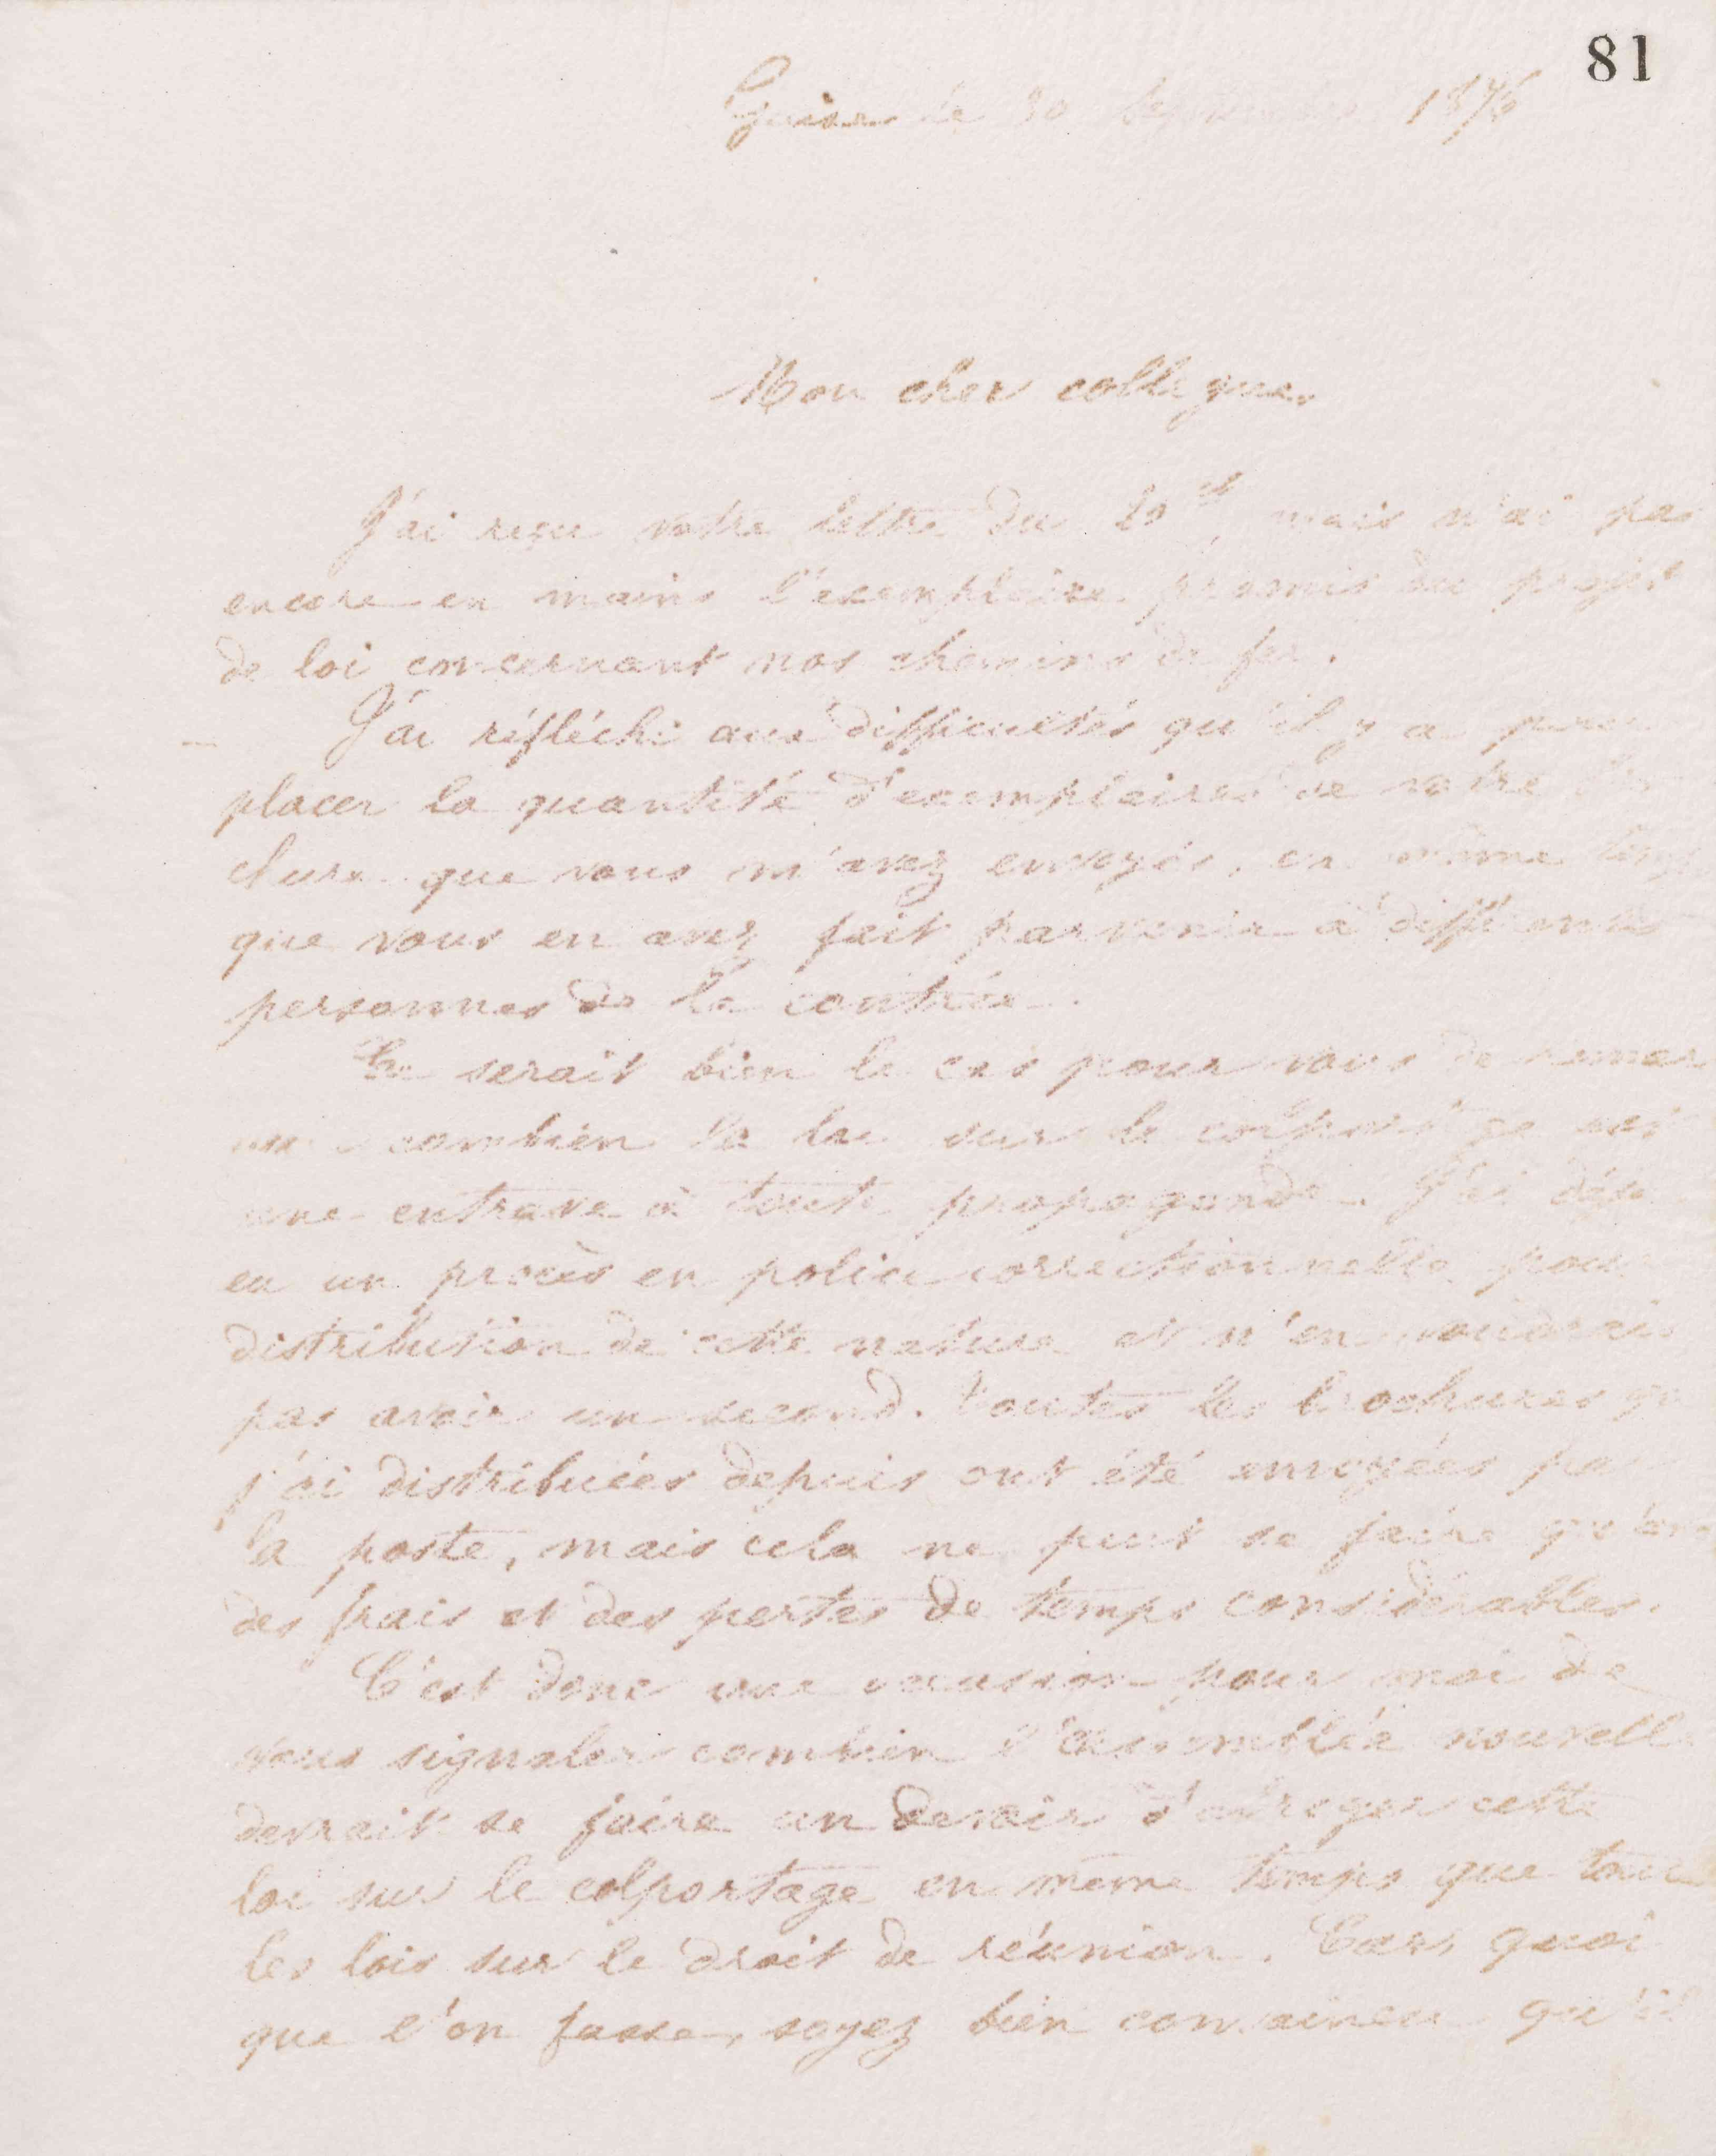 81
Guise le 30 septembre 1876
Mon cher collègue,
J'ai reçu votre lettre du 20 ct, mais n'ai pas
encore en mains l'exemplaire promis du projet
de loi concernant nos chemins de fer.
J'ai réfléchi aux difficultés qu'il y a pour
placer la quantité d'exemplaires de votre bro
chure que vous m'avez envoyés, en même temps
que vous en avez fait parvenir à différentes
personnes de la contrée.
Ce serait bien le cas pour vous de remar
quer combien la loi sur le colportage est
une entrave à toute propagande. J'ai déjà
eu un procès en police correctionnelle pour
distribution de cette nature et n'en voudrais
pas avoir un second. Toutes les brochures que
j'ai distribuées depuis ont été envoyées par
la poste, mais cela ne peut se faire qu'avec
des frais et des pertes de temps considérables.
C'est donc une occasion pour moi de
vous signaler combien l'assemblée nouvelle
devrait se faire un devoir d'abroger cette
loi sur le colportage en même temps que toutes
les lois sur le droit de réunion. Car, quoi
que l'on fasse, soyez bien convaincu qu'il